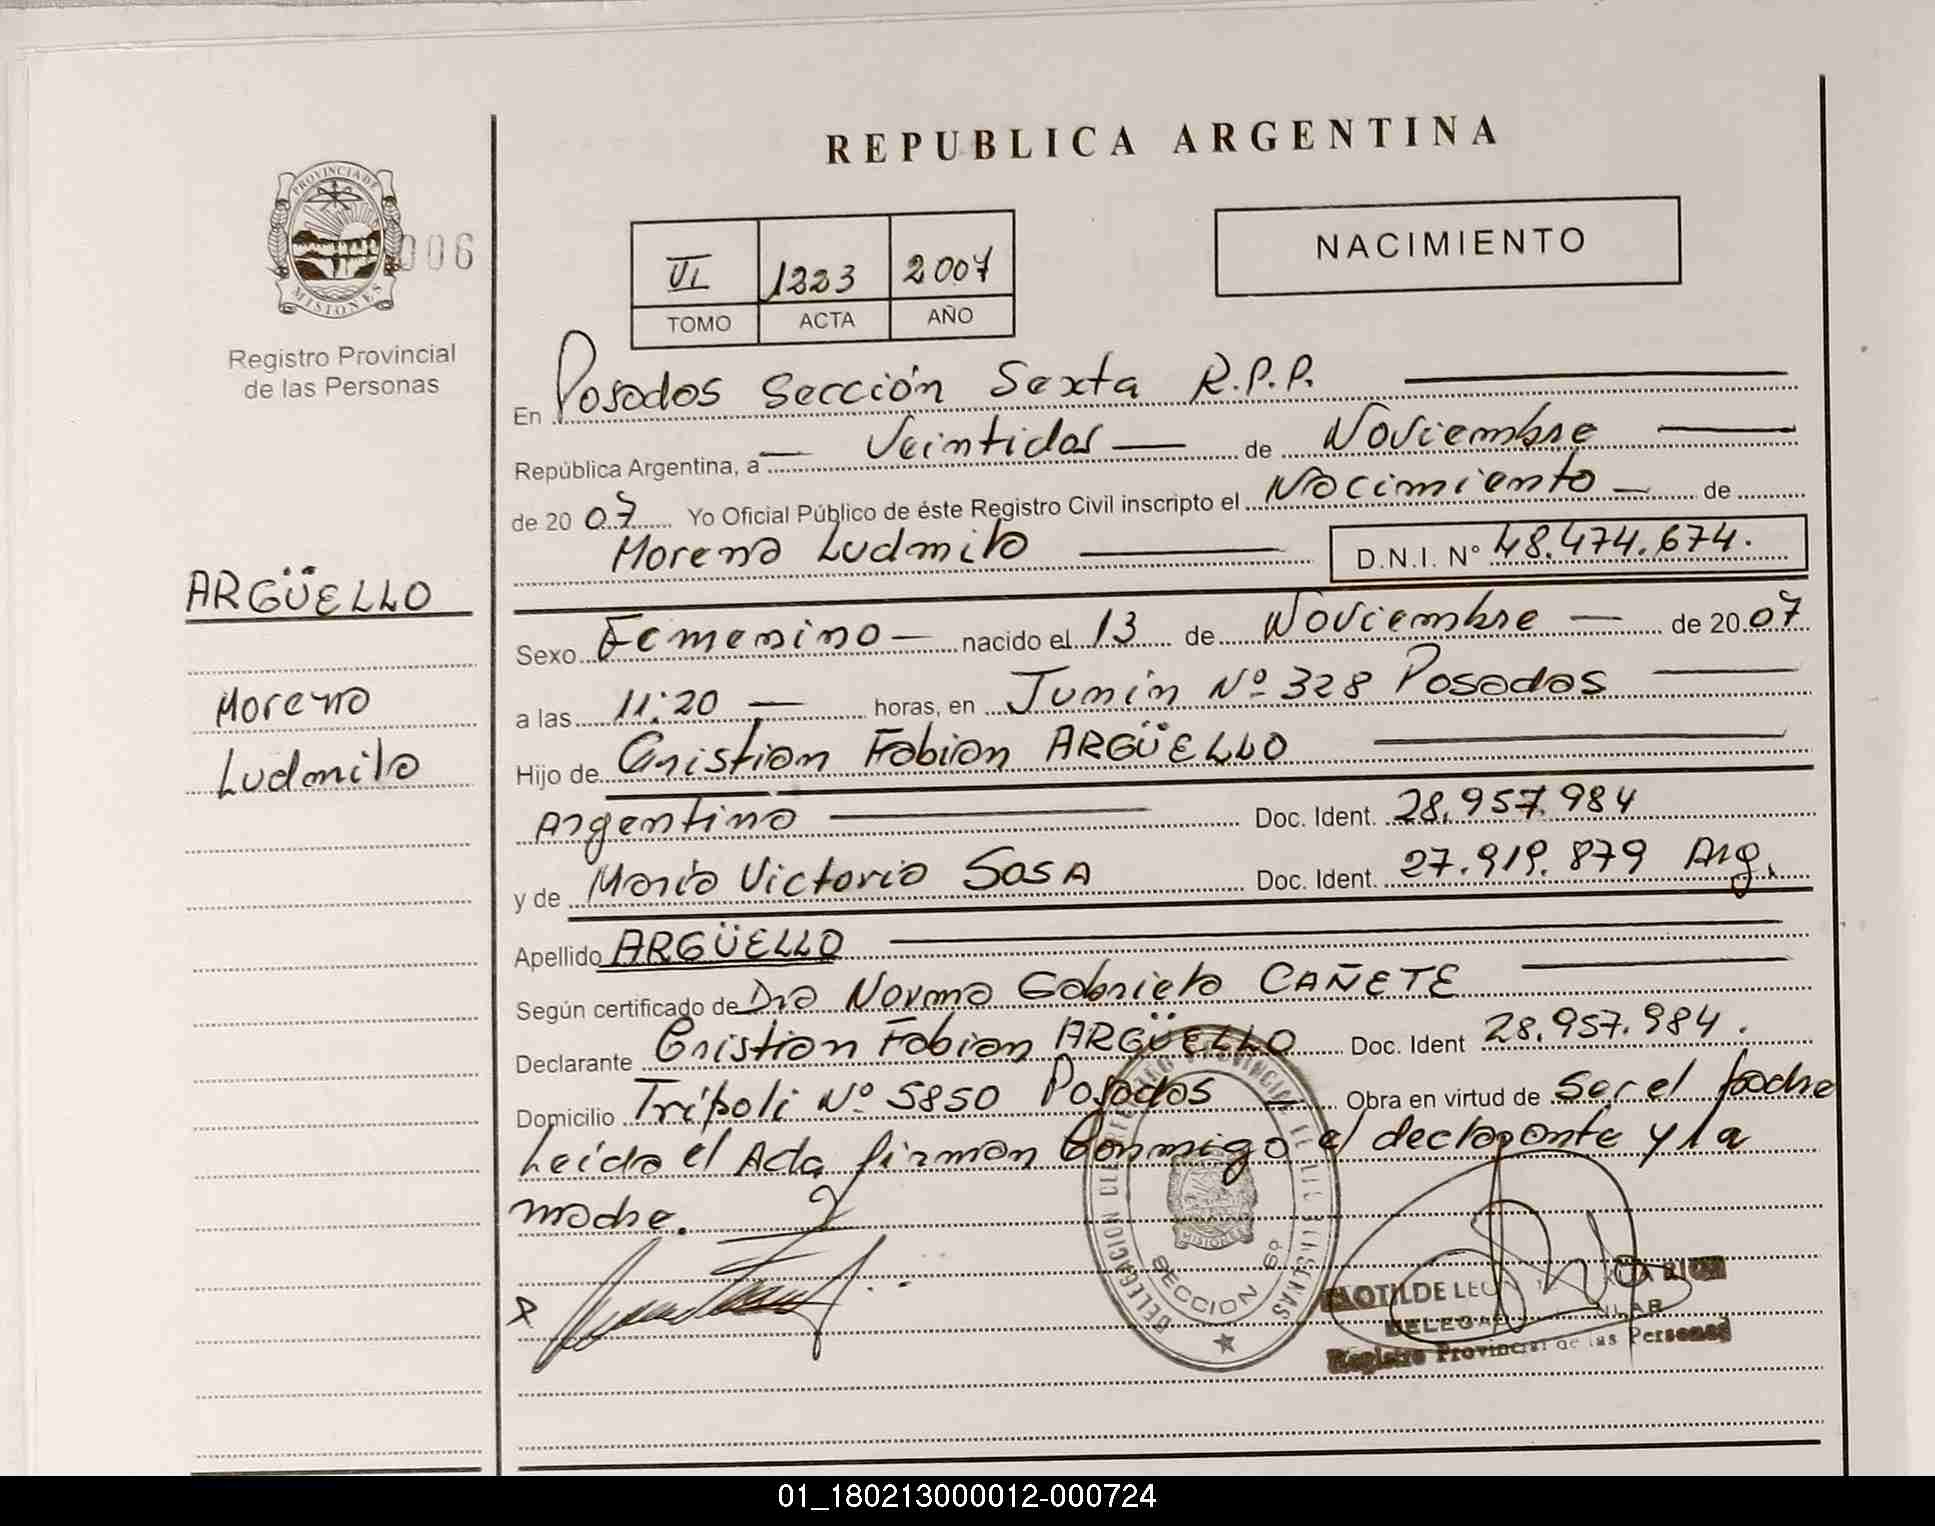 REPUBLICA ARGENTINA
PROVINCIA DE
MISIONES
006
Registro Provincial
de las Personas
VI 1223 2007
TOMO ACTA AÑO
NACIMIENTO
En Posadas Sección Sexta R.P.P.
República Argentina, a Veintidos de Noviembre
de 2007 Yo Oficial Público de éste Registro Civil inscripto el Nacimiento de
Morena Ludmila D.N.I. Nº 48.474.674.
ARGÜELLO
Morena
Ludmila
Sexo Femenino nacido el 13 de Noviembre de 2007
a las 11:20 horas, en Junin Nº 328 Posadas
Hijo de Cristian Fabian ARGÜELLO
Argentino Doc. Ident. 28.957.984
y de Maria Victoria SOSA Doc. Ident. 27.919.879 Arg.
Apellido ARGÜELLO
Según certificado de Dra Norma Gabriela CAÑETE
Declarante Cristian Fabian ARGÜELLO Doc. Ident 28.957.984.
Domicilio Trípoli Nº 5850 Posadas Obra en virtud de Ser el padre
Leída el Acta firman Conmigo el declarante y la
madre.
DELEGACION DEL REGISTRO PROVINCIAL DE LAS PERSONAS
MISIONES
SECCION 6º
CLOTILDE
Registro Provincial de las Personas
01_180213000012-000724